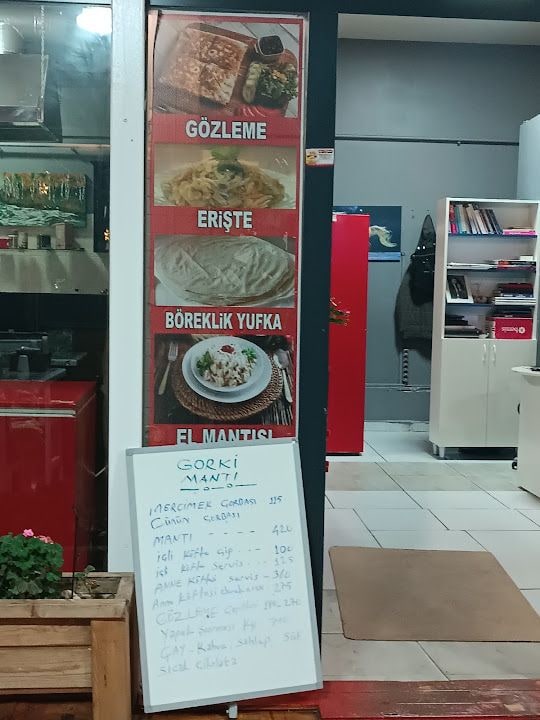 GÖZLEME
ERİŞTE
BÖREKLİK YUFKA
EL MANTISI
GORKİ
MANTI
MERCİMEK ÇORBASI 115
GÜNÜN ÇORBASI
MANTI - - - - 420
içli Köfte Çiğ . . - 100
içli Köfte Servis . . . 125
ANNE Köftesi Servis - 360
Anne Köftesi 275
GÖZLEME Çeşitleri 270
Yaprak Sarması Kg 700
ÇAY - Kahve, Sahlep, Süt
Sıcak Çikolata